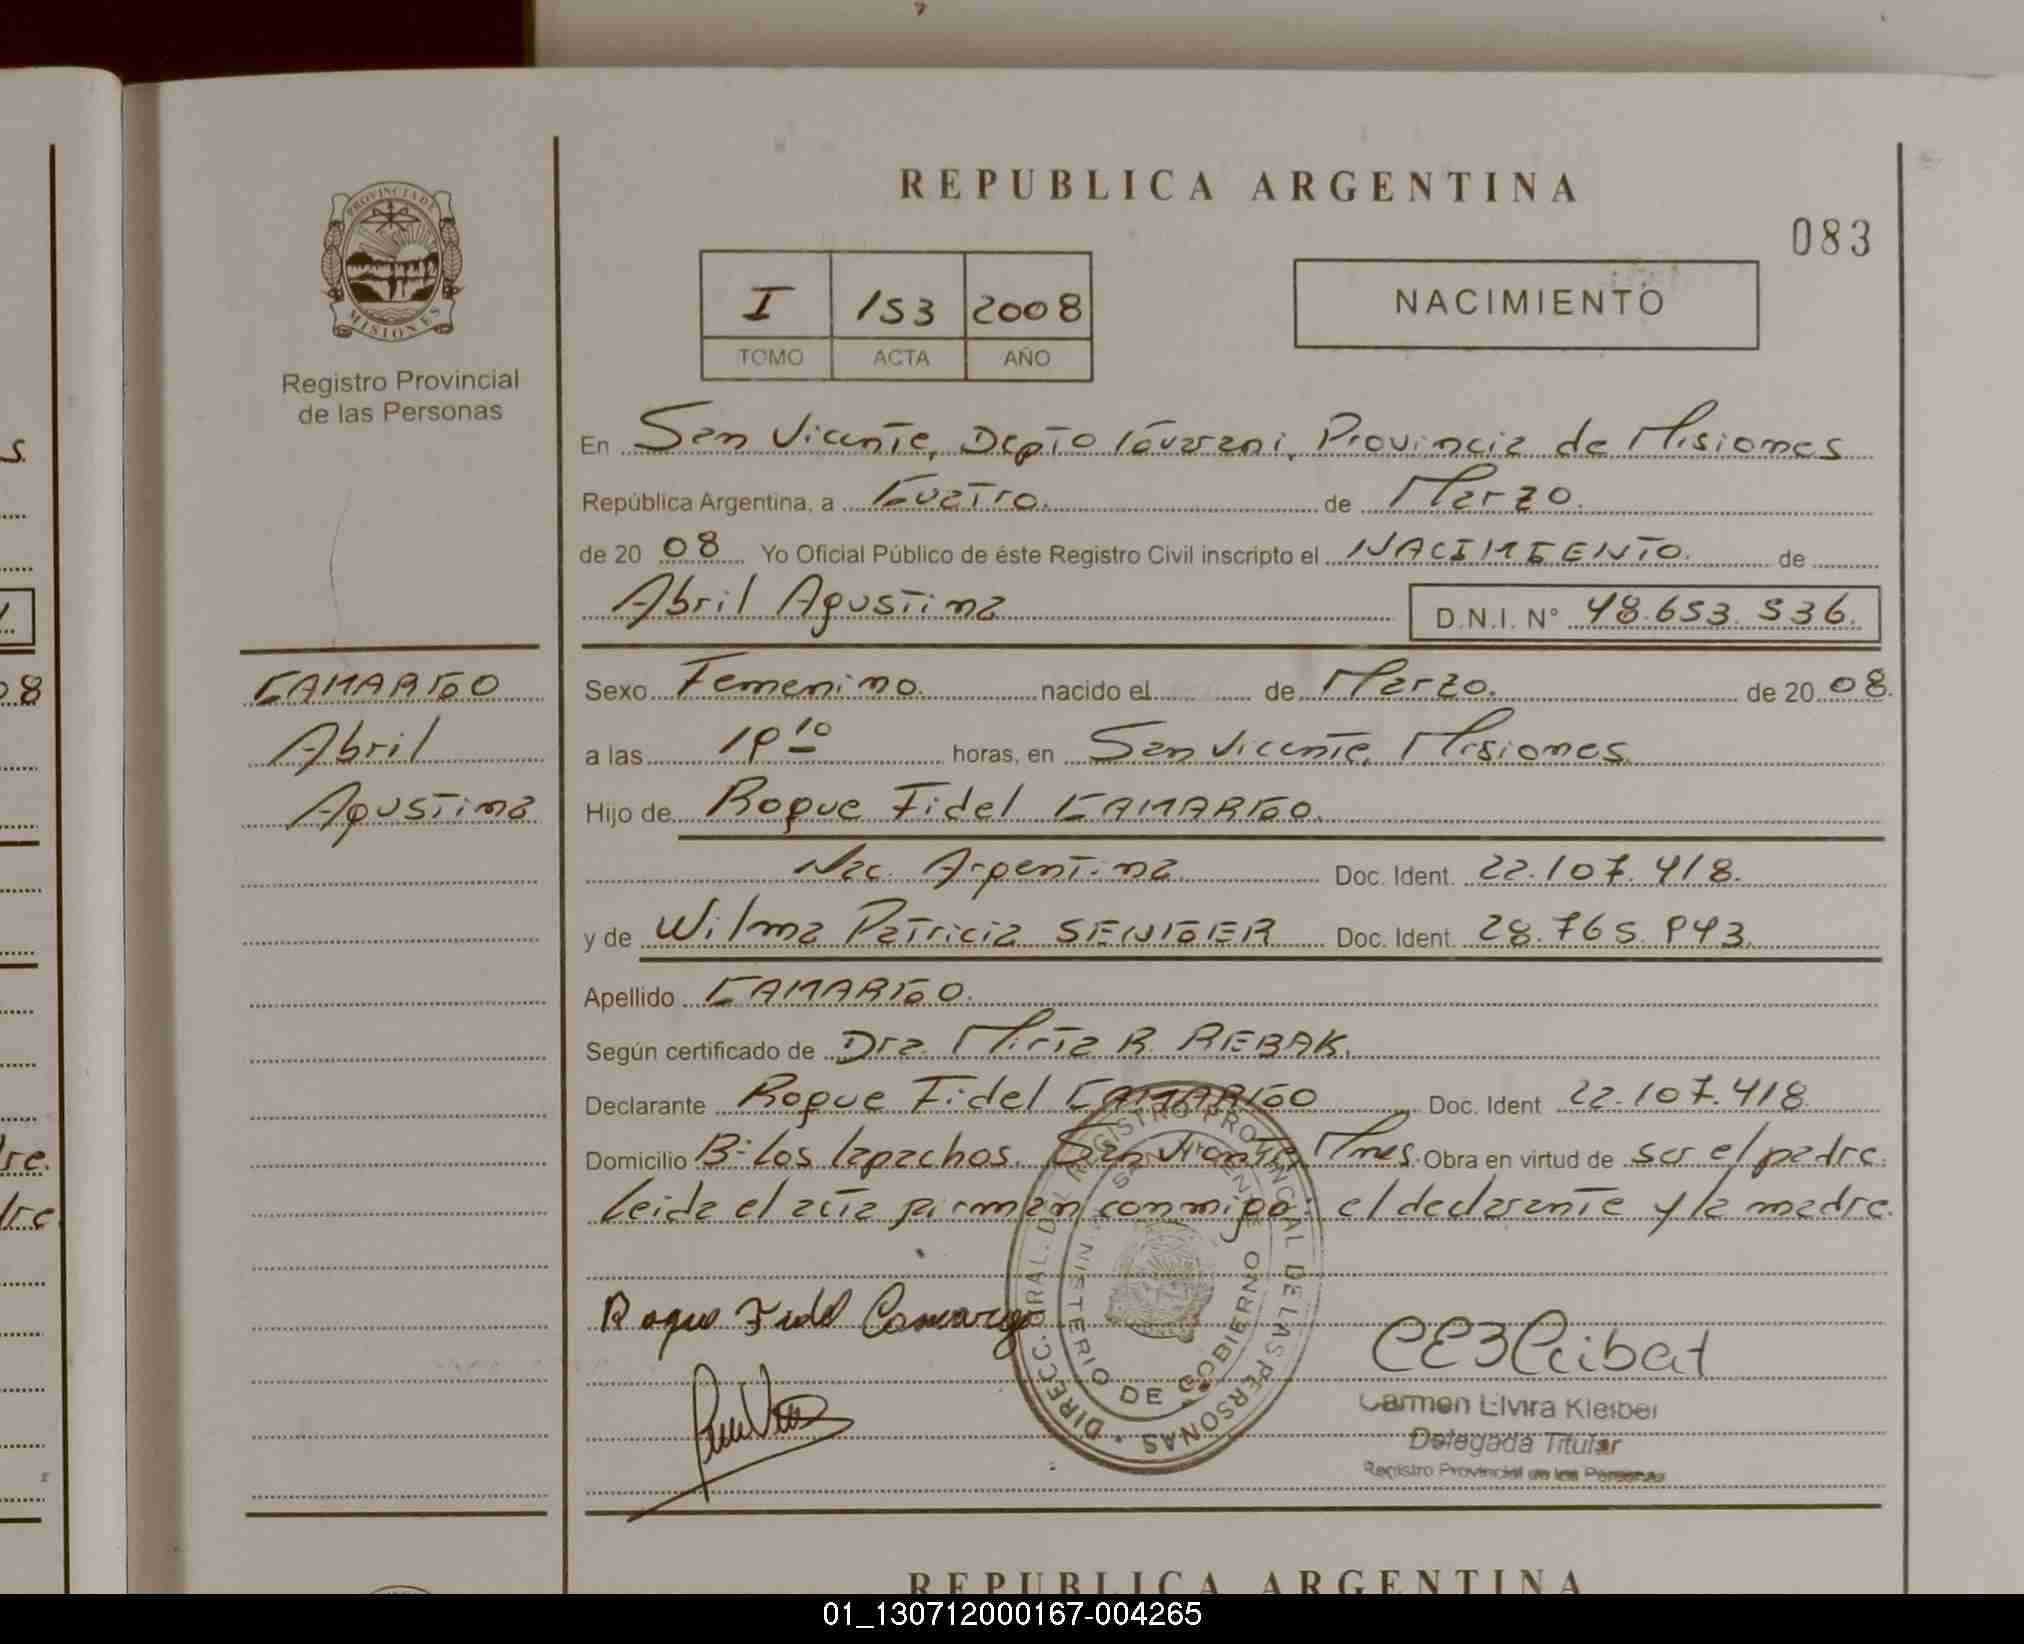 REPUBLICA ARGENTINA
083
I 153 2008
TOMO ACTA AÑO
NACIMIENTO
PROVINCIA DE MISIONES
Registro Provincial
de las Personas
En San Vicente, Depto Guarani, Provincia de Misiones
República Argentina, a Cuatro. de Marzo.
de 20 08 Yo Oficial Público de éste Registro Civil inscripto el NACIMIENTO. de
Abril Agustina D.N.I. N° 48.653.536.
CAMARGO
Abril
Agustina
Sexo Femenino. nacido el de Marzo. de 20 08.
a las 19 10 horas, en San Vicente, Misiones.
Hijo de Roque Fidel CAMARGO.
Nac. Argentina. Doc. Ident. 22.107.418.
y de Wilma Patricia SENGER Doc. Ident. 28.765.943.
Apellido CAMARGO.
Según certificado de Dra. Mirta R. REBAK.
Declarante Roque Fidel CAMARGO Doc. Ident 22.107.418
Domicilio B: Los lapachos, San Vicente, Mnes. Obra en virtud de ser el padre.
Leida el acta firman conmigo: el declarante y la madre.
Roque Fidel Camargo
DIRECC. GRAL. DEL REGISTRO PROVINCIAL DE LAS PERSONAS
MINISTERIO DE GOBIERNO
SAN VICENTE
Carmen Elvira Kleiber
Delegada Titular
Registro Provincial de las Personas
REPUBLICA ARGENTINA
01_130712000167-004265